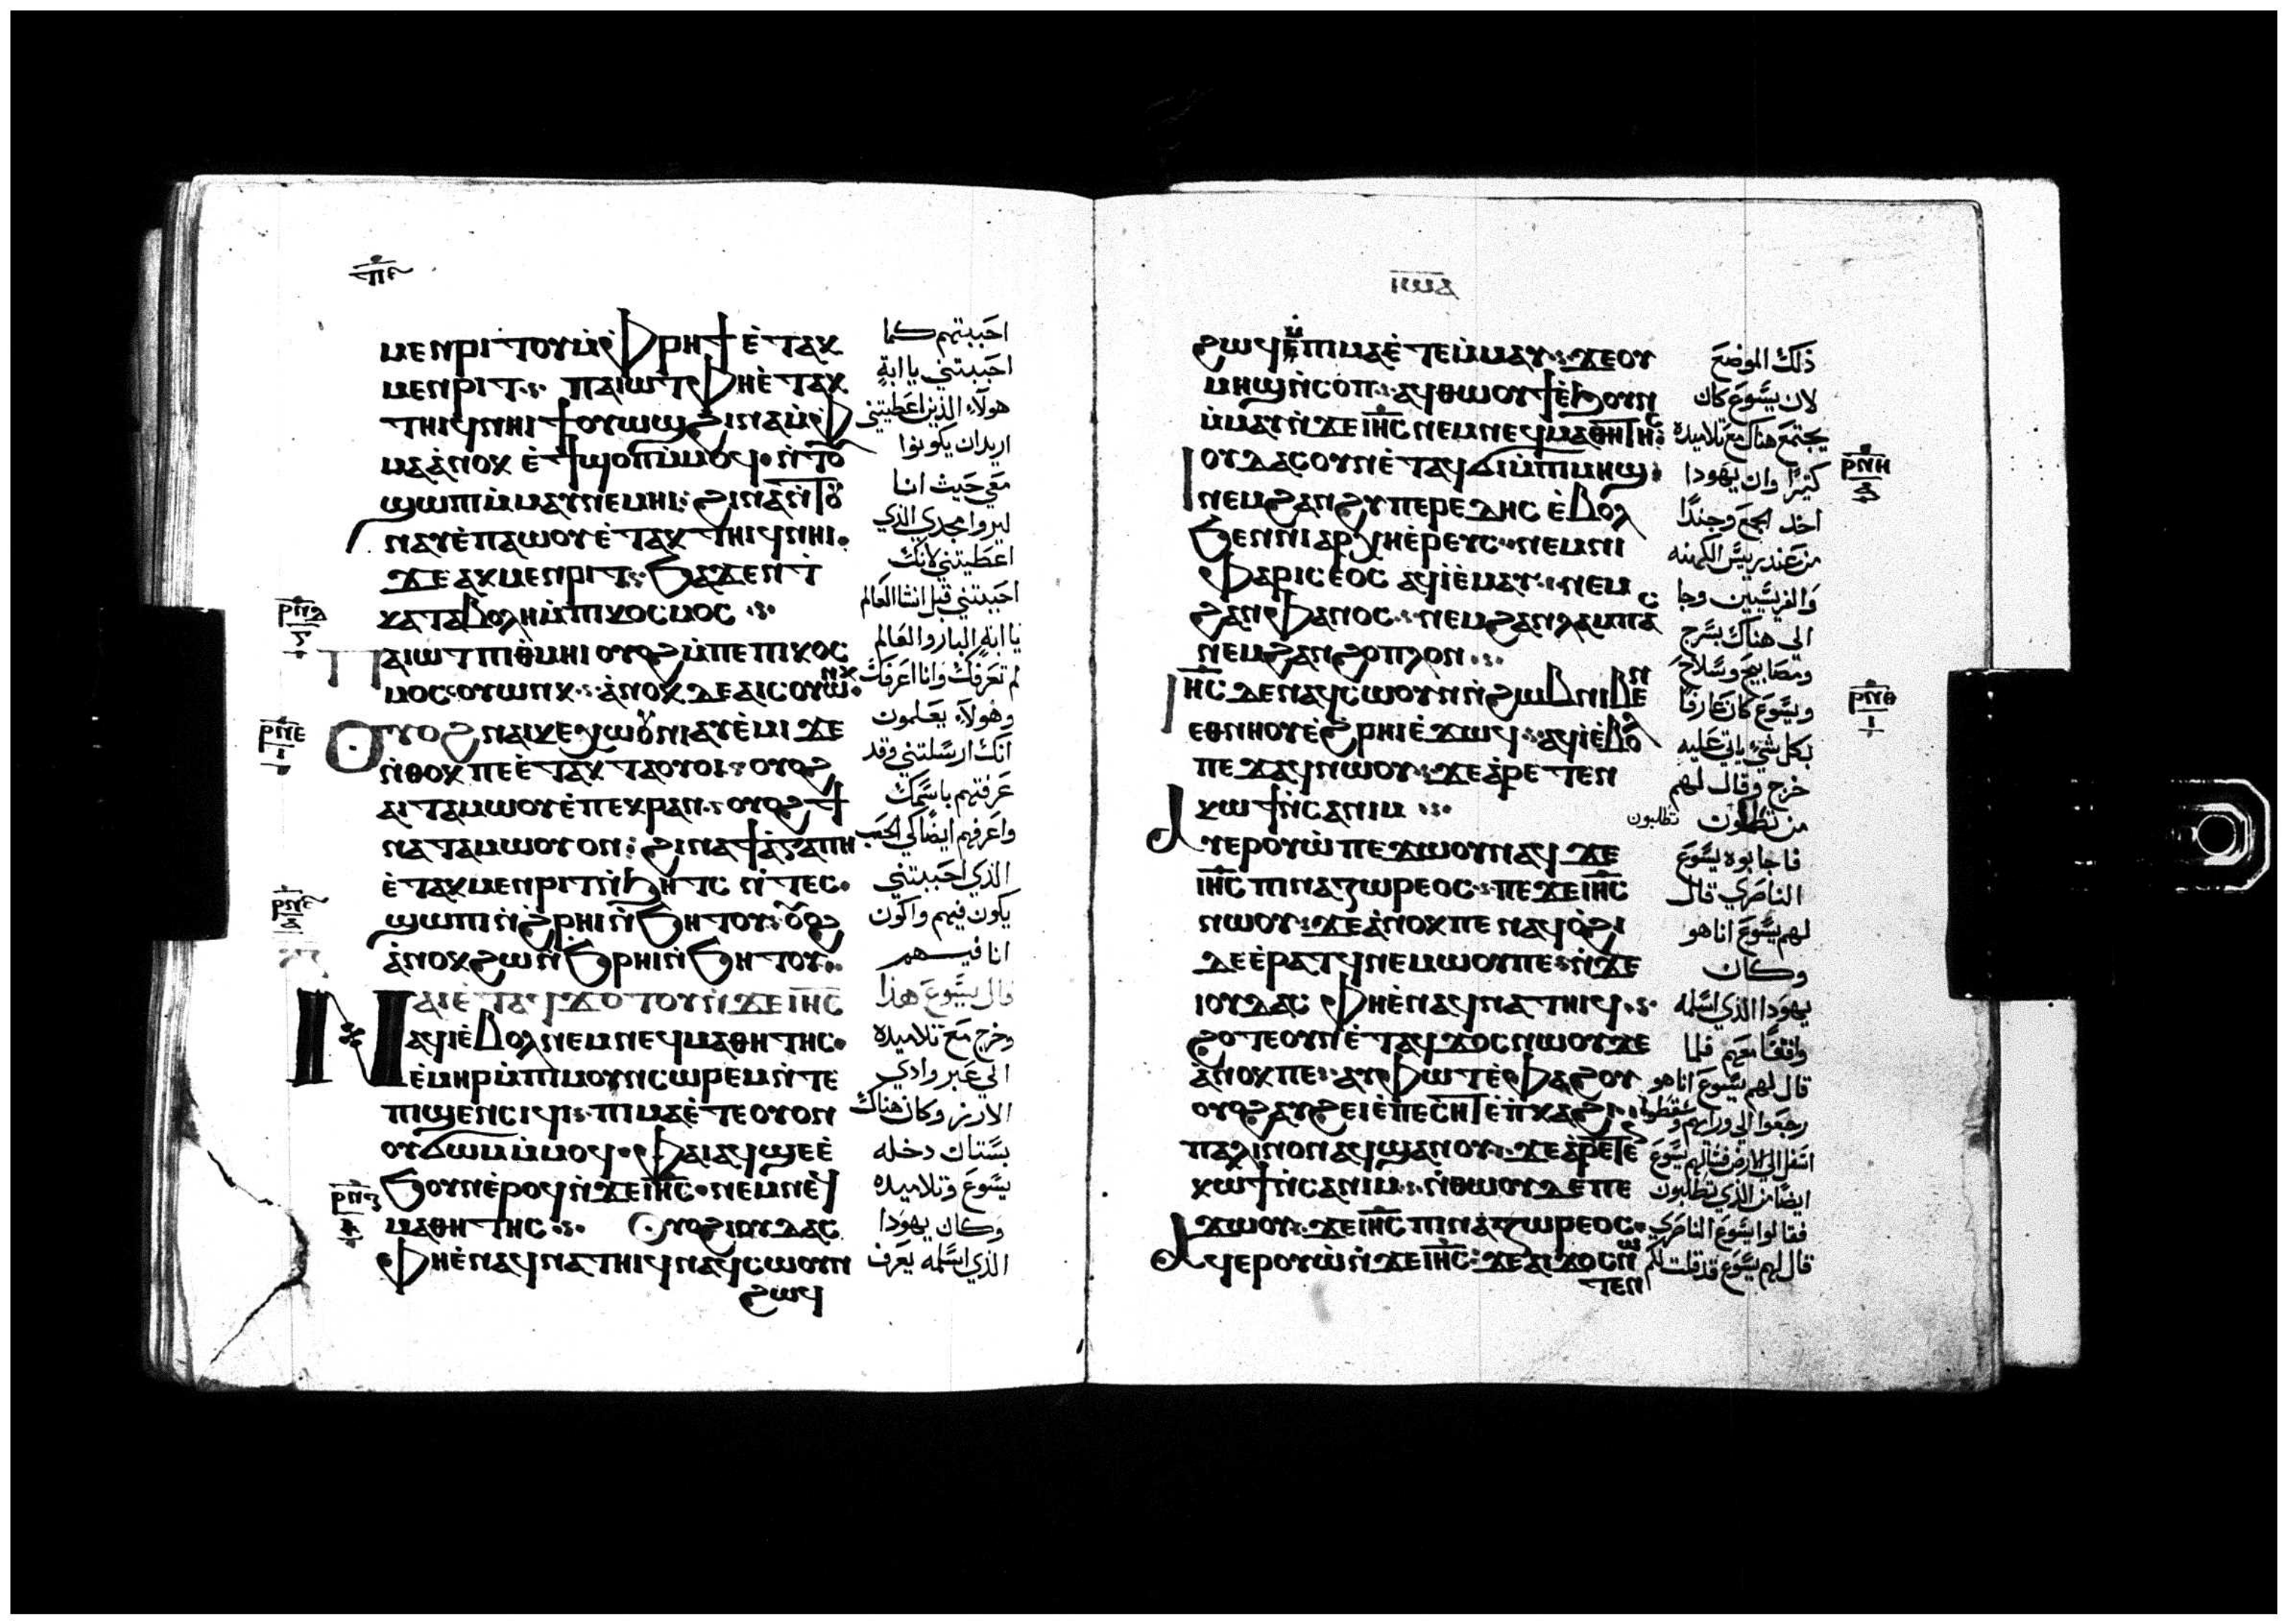 ⲙⲉⲛⲣⲓⲧⲟⲩ ⲙ̀ⲫⲣⲏϯ ⲉ̀ⲧⲁⲕ
ⲙⲉⲛⲣⲓⲧ ⲡⲁⲓⲱⲧ ⲫⲏⲉ̀ⲧⲁⲕ
ⲧⲏⲓϥ ⲛⲏⲓ ϯⲟⲩⲱϣ ϩⲓⲛⲁ ⲙ̀ⲫ
ⲙⲁ ⲁ̀ⲛⲟⲕ ⲉ̀ϯϣⲟⲡ ⲙ̀ⲙⲟϥ ⲛ̀ⲧⲟⲩ
ϣⲱⲡⲓ ⲙ̀ⲙⲁⲩ ⲛⲉⲙⲏⲓ ϩⲓⲛⲁ ⲛ̀ⲧⲟⲩ
ⲛⲁⲩ ⲉ̀ⲡⲁⲱⲟⲩ ⲉ̀ⲧⲁⲕⲧⲏⲓϥ ⲛⲏⲓ
ϫⲉ ⲁⲕⲙⲉⲛⲣⲓⲧ ϧⲁϫⲉⲛ ⲧ
ⲕⲁⲧⲁⲃⲟⲗⲏ ⲙ̀ⲡⲓⲕⲟⲥⲙⲟⲥ
ⲡⲁⲓⲱⲧ ⲡⲓⲑⲙⲏⲓ ⲟⲩⲟϩ ⲙ̀ⲡⲉ ⲡⲓⲕⲟⲥ
ⲙⲟⲥ ⲥⲟⲩⲱⲛⲕ ⲁ̀ⲛⲟⲕ ⲇⲉ ⲁⲓⲥⲟⲩⲱⲛⲕ
ⲟⲩⲟϩ ⲛⲁⲓⲕⲉⲭⲱⲟⲩⲛⲓ ⲁⲩⲉ̀ⲙⲓ ϫⲉ
ⲛ̀ⲑⲟⲕ ⲡⲉ ⲉ̀ⲧⲁⲕⲧⲁⲟⲩⲟⲓ ⲟⲩⲟϩ
ⲁⲓⲧⲁⲙⲱⲟⲩ ⲉ̀ⲡⲉⲕⲣⲁⲛ ⲟⲩⲟϩ ϯ
ⲛⲁⲧⲁⲙⲱⲟⲩ ⲟⲛ ϩⲓⲛⲁ ϯⲁ̀ⲅⲁⲡⲏ
ⲉ̀ⲧⲁⲕⲙⲉⲛⲣⲓⲧ ⲛ̀ϧⲏⲧⲥ ⲛ̀ⲧⲉⲥ
ϣⲱⲡⲓ ⲛ̀ϩⲣⲏⲓ ⲛ̀ϧⲏⲧⲟⲩ ⲟⲩⲟϩ
ⲁ̀ⲛⲟⲕ ϩⲱ ⲛ̀ϧⲣⲏⲓ ⲛ̀ϧⲏⲧⲟⲩ
ⲛⲁⲓ ⲉ̀ⲧⲁϥϫⲟⲧⲟⲩ ⲛ̀ϫⲉ ⲓⲏ̅ⲥ̅
ⲁϥⲓ̀ ⲉ̀ⲃⲟⲗ ⲛⲉⲙ ⲛⲉϥⲙⲁⲑⲏⲧⲏⲥ
ⲉ̀ⲙⲏⲣ ⲙ̀ⲡⲓⲙⲟⲩⲛⲥⲱⲣⲉⲙ ⲛ̀ⲧⲉ
ⲡⲓϣⲉⲛⲥⲓϥⲓ ⲡⲓⲙⲁ ⲉ̀ⲧⲉ ⲟⲩⲟⲛ
ⲟⲩϭⲱⲙ ⲙ̀ⲙⲟϥ ⲫⲁⲓ ⲁϥϣⲉ ⲉ̀
ϧⲟⲩⲛ ⲉ̀ⲣⲟϥ ⲛ̀ϫⲉ ⲓⲏ̅ⲥ̅ ⲛⲉⲙ ⲛⲉϥ
ⲙⲁⲑⲏⲧⲏⲥ ⲟⲩⲟϩ ⲓⲟⲩⲇⲁⲥ
ⲫⲏⲉ̀ⲛⲁϥⲛⲁⲧⲏⲓϥ ⲛⲁϥⲥⲱⲟⲩⲛ
ϩⲱϥ
احببتهم كما
احببتني يا ابةِ
هولآء الذين اعطيتني
اريد ان يكونوا
معي حيث انا
ليروا مجدي الذي
اعطيتني لانك
احببتني قبل انشا العالم
يا ابةِ البار والعالم
لم تعرفك وانا اعرفك
وهولآء يعلمون
انك ارسلتني وقد
عرفتهم باسمك
واعرفهم ايضا كي الحب
الذي احببتني
يكون فيهم واكون
انا فيهم
قال يسوع هذا
وخرج مع تلاميذه
الي عبر وادي
الارز وكان هناك
بستان دخله
يسوع وتلاميذه
وكان يهودا
الذي اسلمه يعرف
ⲣⲛⲇ
ⲣⲛⲉ
ⲣⲛⲋ
ⲣⲛⲍ
ϩⲱϥ ⲙ̀ⲡⲓⲙⲁ ⲉ̀ⲧⲉⲙ̀ⲙⲁⲩ ϫⲉ ⲟⲩ
ⲙⲏϣ ⲛ̀ⲥⲟⲡ ⲁϥⲑⲱⲟⲩϯ ⲉ̀ϧⲟⲩⲛ
ⲙ̀ⲙⲁⲩ ⲛ̀ϫⲉ ⲓⲏ̅ⲥ̅ ⲛⲉⲙ ⲛⲉϥⲙⲁⲑⲏⲧⲏⲥ
ⲓⲟⲩⲇⲁⲥ ⲟⲩⲛ ⲉ̀ⲧⲁϥϭⲓ ⲙ̀ⲡⲓⲙⲏϣ
ⲛⲉⲙ ϩⲁⲛϩⲩⲡⲉⲣⲉⲧⲏⲥ ⲉ̀ⲃⲟⲗ
ϧⲉⲛ ⲛⲓⲁⲣⲭⲏⲉ̀ⲣⲉⲩⲥ ⲛⲉⲙ ⲛⲓ
ⲫⲁⲣⲓⲥⲉⲟⲥ ⲁϥⲓ̀ ⲉ̀ⲙⲁⲩ ⲛⲉⲙ
ϩⲁⲛⲫⲁⲛⲟⲥ ⲛⲉⲙ ϩⲁⲛⲗⲁⲙⲡⲁⲥ
ⲛⲉⲙ ϩⲁⲛϩⲟⲡⲗⲟⲛ
ⲓⲏ̅ⲥ̅ ⲇⲉ ⲛⲁϥⲥⲱⲟⲩⲛ ⲛ̀ϩⲱⲃ ⲛⲓⲃⲉⲛ
ⲉⲑⲛⲏⲟⲩ ⲉ̀ϩⲣⲏⲓ ⲉ̀ϫⲱϥ ⲁϥⲓ̀ ⲉ̀ⲃⲟⲗ
ⲡⲉϫⲁϥ ⲛⲱⲟⲩ ϫⲉ ⲁ̀ⲣⲉⲧⲉⲛ
ⲕⲱϯ ⲛ̀ⲥⲁ ⲛⲓⲙ
ⲁⲩⲉⲣⲟⲩⲱ̀ ⲡⲉϫⲱⲟⲩ ⲛⲁϥ ϫⲉ
ⲓⲏ̅ⲥ̅ ⲡⲓⲛⲁⲍⲱⲣⲉⲟⲥ ⲡⲉϫⲉ ⲓⲏ̅ⲥ̅
ⲛⲱⲟⲩ ϫⲉ ⲁ̀ⲛⲟⲕ ⲡⲉ ⲛⲁϥⲟ̀ϩⲓ
ⲇⲉ ⲉ̀ⲣⲁⲧϥ ⲛⲉⲙⲱⲟⲩ ⲡⲉ ⲛ̀ϫⲉ
ⲓⲟⲩⲇⲁⲥ ⲫⲏⲉ̀ⲛⲁϥⲛⲁⲧⲏⲓϥ
ϩⲟⲧⲉ ⲟⲩⲛ ⲉ̀ⲧⲁϥϫⲟⲥ ⲛⲱⲟⲩ ϫⲉ
ⲁ̀ⲛⲟⲕ ⲡⲉ ⲁⲩⲫⲱⲧ ⲉ̀ⲫⲁϩⲟⲩ
ⲟⲩⲟϩ ⲁⲩϩⲉⲓ ⲉ̀ⲡⲉⲥⲏⲧ ⲉ̀ⲡⲕⲁϩⲓ
ⲡⲁⲗⲓⲛ ⲟⲛ ⲁϥϣⲉⲛⲟⲩ ϫⲉ ⲁ̀ⲣⲉⲧⲉ
ⲕⲱϯ ⲛ̀ⲥⲁ ⲛⲓⲙ ⲛ̀ⲑⲱⲟⲩ ⲇⲉ ⲡⲉ
ϫⲱⲟⲩ ϫⲉ ⲓⲏ̅ⲥ̅ ⲡⲓⲛⲁⲍⲱⲣⲉⲟⲥ
ⲁϥⲉⲣⲟⲩⲱ̀ ⲛ̀ϫⲉ ⲓⲏ̅ⲥ̅ ϫⲉ ⲁⲓϫⲟⲥ ⲛⲱ
ⲧⲉⲛ
ذلك الموضع
لان يسوع كان
يجتمع هناك مع تلاميذه
كثيرا وان يهودا
اخذ الجمع وجندا
من عند ريس الكهنه
والفريسيين وجا
الي هناك بسرج
ومصابيح وسلاح
ويسوع كان عارفا
بكل شيء ياتي عليه
خرج وقال لهم
من تطلبون تطلبون
فاجابوه يسوع
الناصري قال
لهم يسوع انا هو
وكان
يهودا الذي اسلمه
واقفا معهم فلما
قال لهم يسوع انا هو
رجعوا الي ورايهم وسقطوا
اسفل الي الارض فسالهم يسوع
ايضا من الذي تطلبون
فقالوا يسوع الناصري
قال لهم يسوع قد قلت لكم
ⲣⲛⲏ
ⲣⲛⲑ